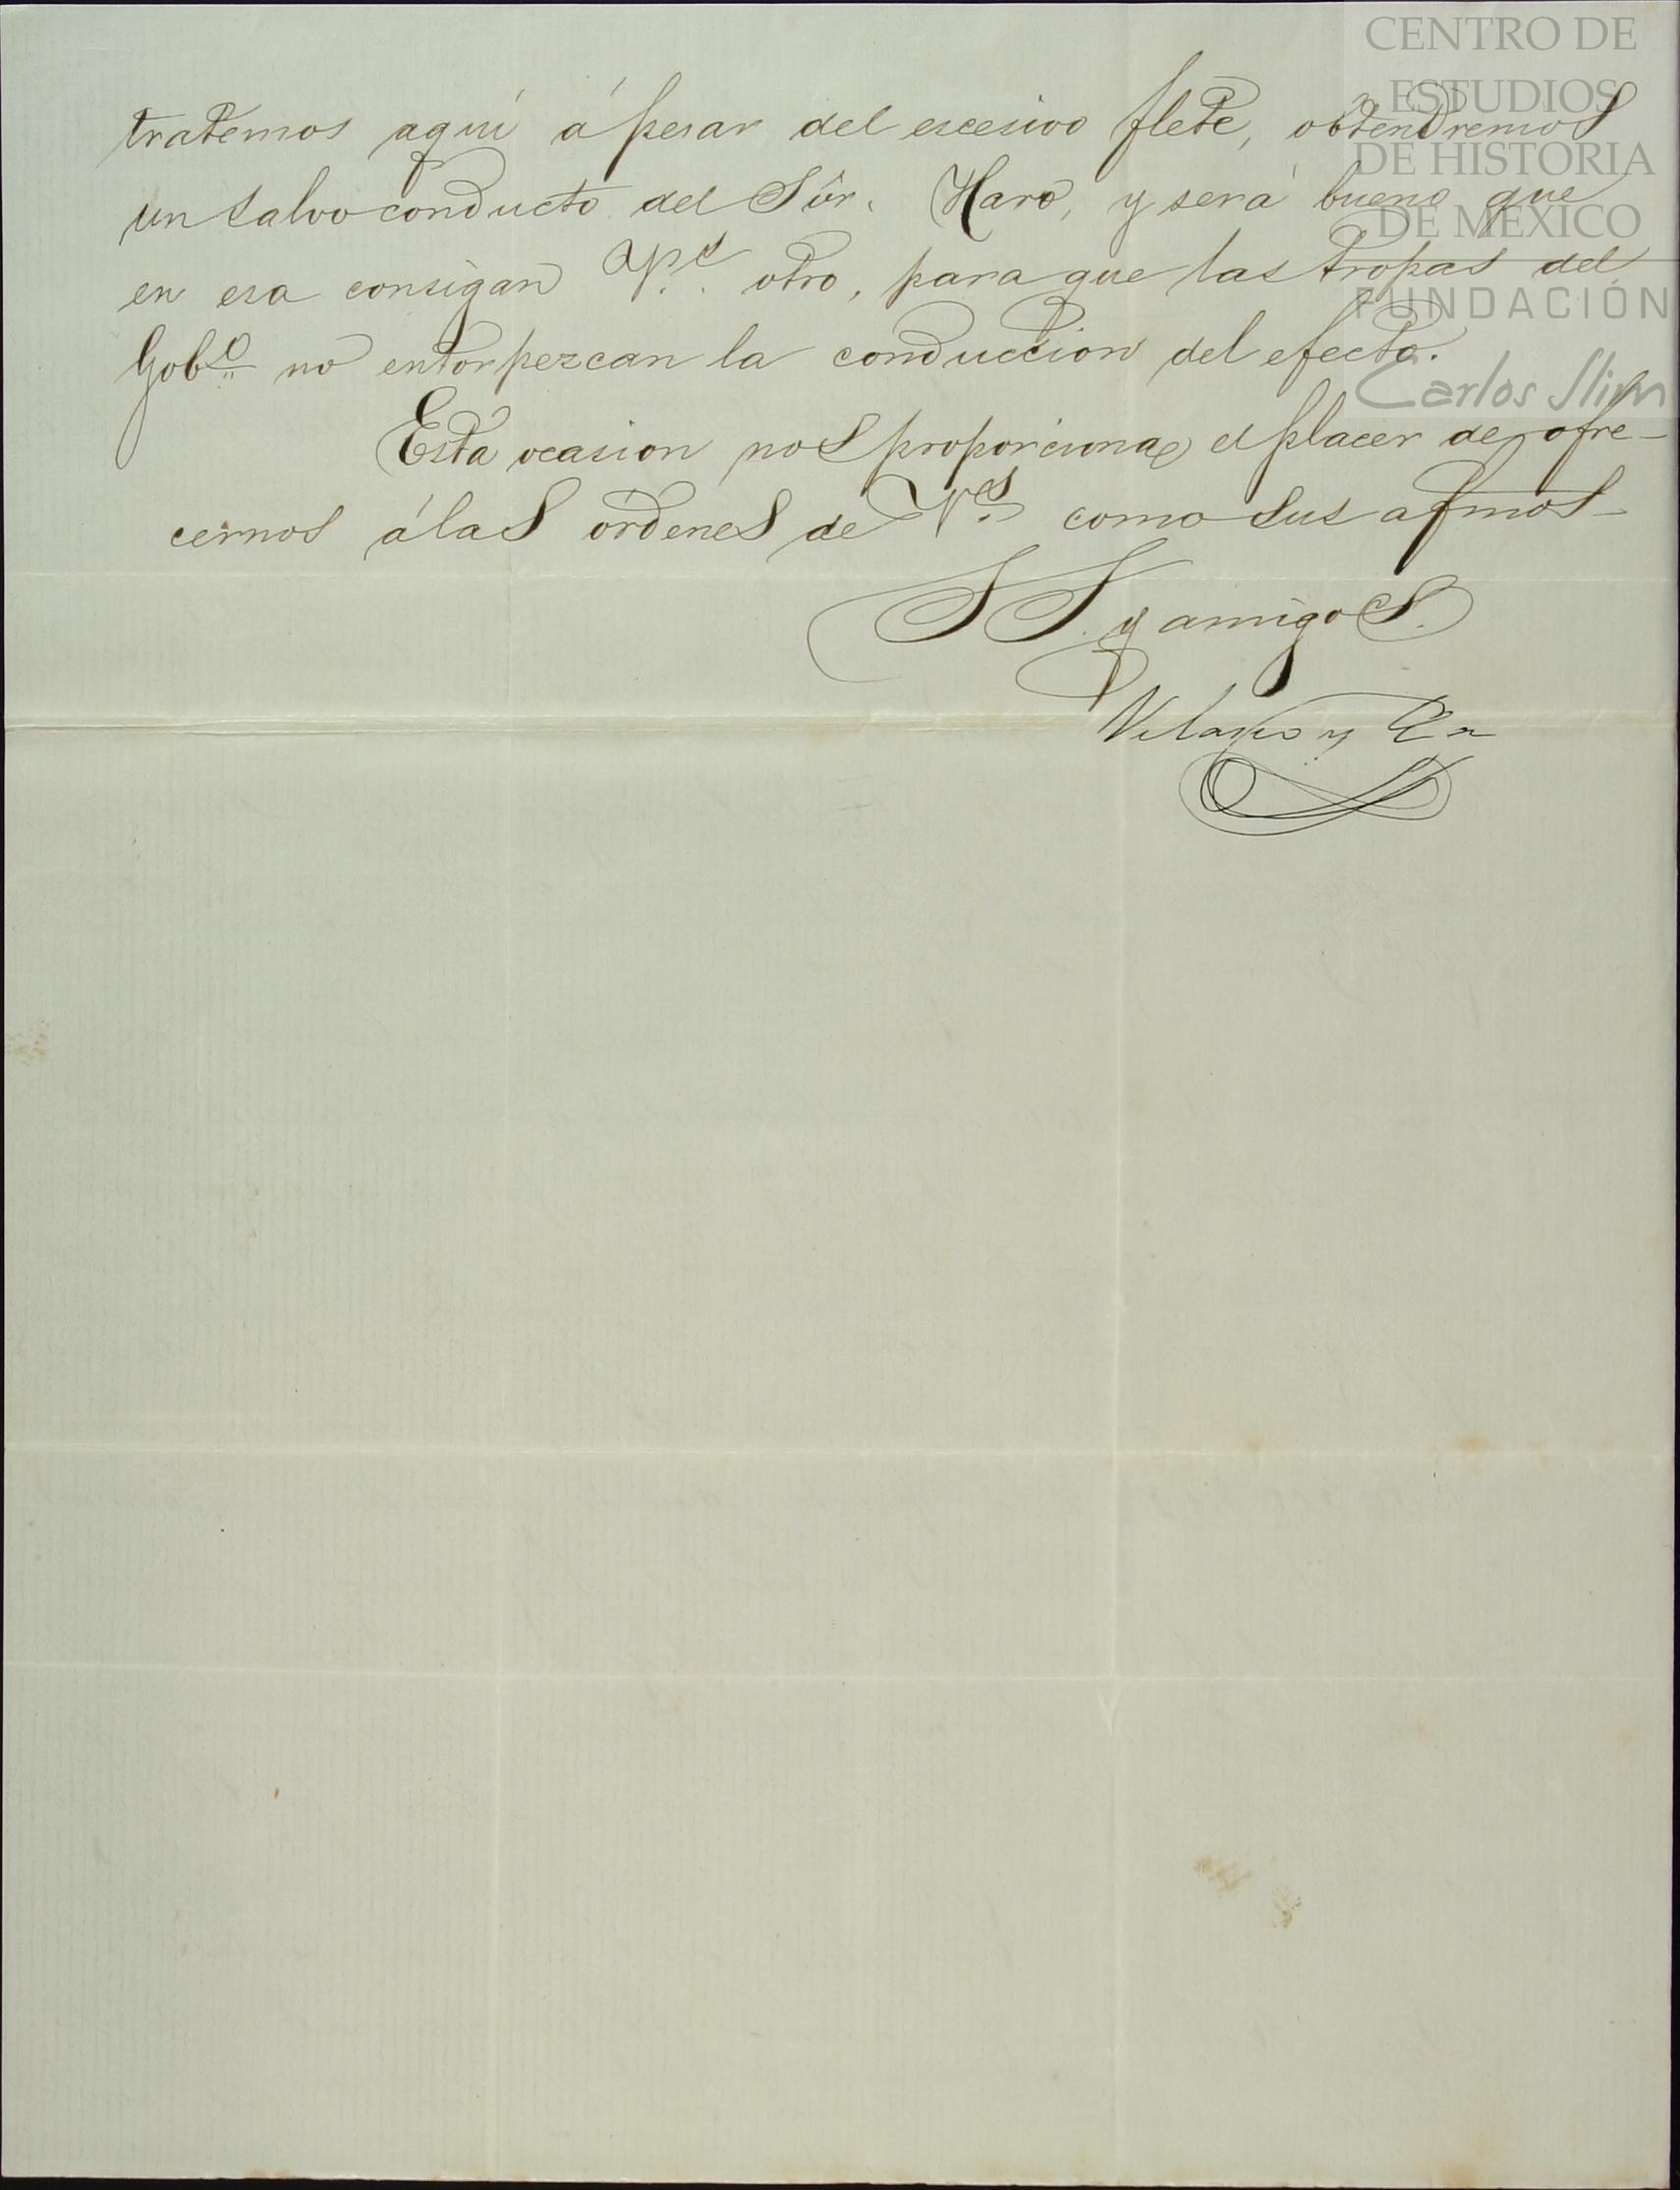 CENTRO DE
ESTUDIOS
DE HISTORIA
DE MÉXICO
FUNDACIÓN
Carlos Slim
tratemos aquí á pesar del escesivo flete, obtendremos
un salvo conducto del Sôr. Haro, y será bueno que
en esa consigan V.s otro, para que las tropas del
Gobº no entorpezcan la conduccion del efecto.
Esta ocasion nos proporciona el placer de ofre-
cernos á las órdenes de V.es como sus afmos-
S S. y amigos.
Velasco y Ca